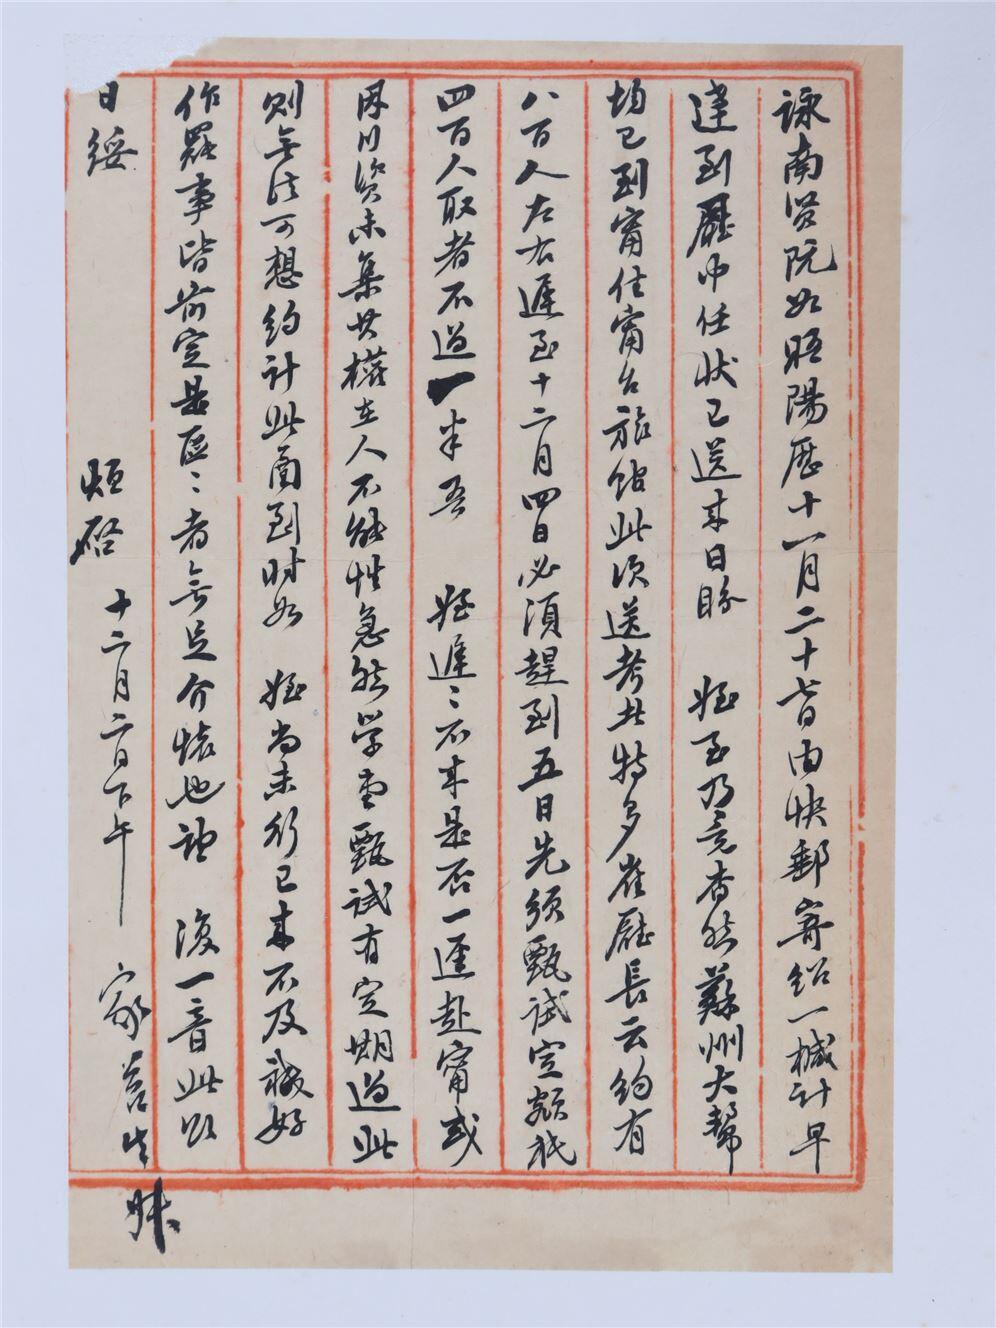 詠南賢阮如晤陽歷十一月二十七日由快郵寄紹一椷計早
達到廳中任狀已送來日盼 姪至乃竟杳然蘇州大幫
均已到甯住甯台旅館此次送考者特多崔廳長云約有
八百人左右遲至十二月四日必須趕到五日先須甄試定額祇
四百人取者不過一半吾 姪遲遲不來是否一逕赴甯或
因川資未集其權在人不能性急然學堂甄試有定期過此
則無法可想約計此函到時如 姪尚未行已來不及祇好
作罷事皆前定是區區者無足介懷也望 復一音此頌
日綏 烜啓 十二月二日下午 家